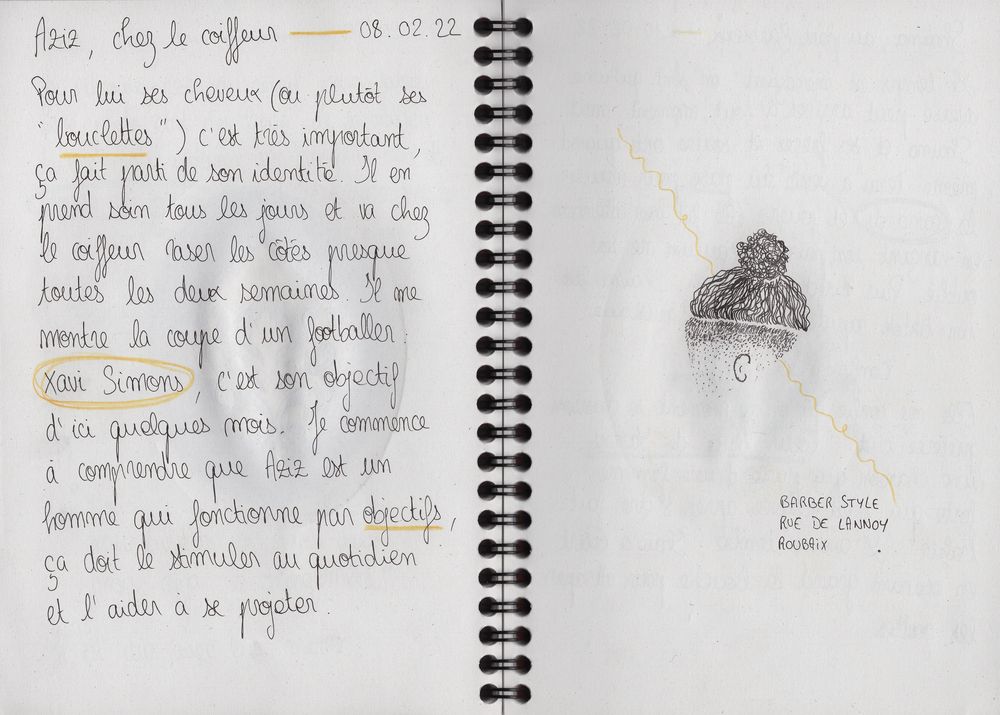 Aziz, chez le coiffeur — 08.02.22
Pour lui ses cheveux (ou plutôt ses
"bouclettes") c'est très important,
ça fait parti de son identité. Il en
prend soin tous les jours et va chez
le coiffeur raser les côtés presque
toutes les deux semaines. Il me
montre la coupe d'un footballer :
Xavi Simons, c'est son objectif
d'ici quelques mois. Je commence
à comprendre que Aziz est un
homme qui fonctionne par objectifs,
ça doit le stimuler au quotidien
et l'aider à se projeter.
BARBER STYLE
RUE DE LANNOY
ROUBAIX.